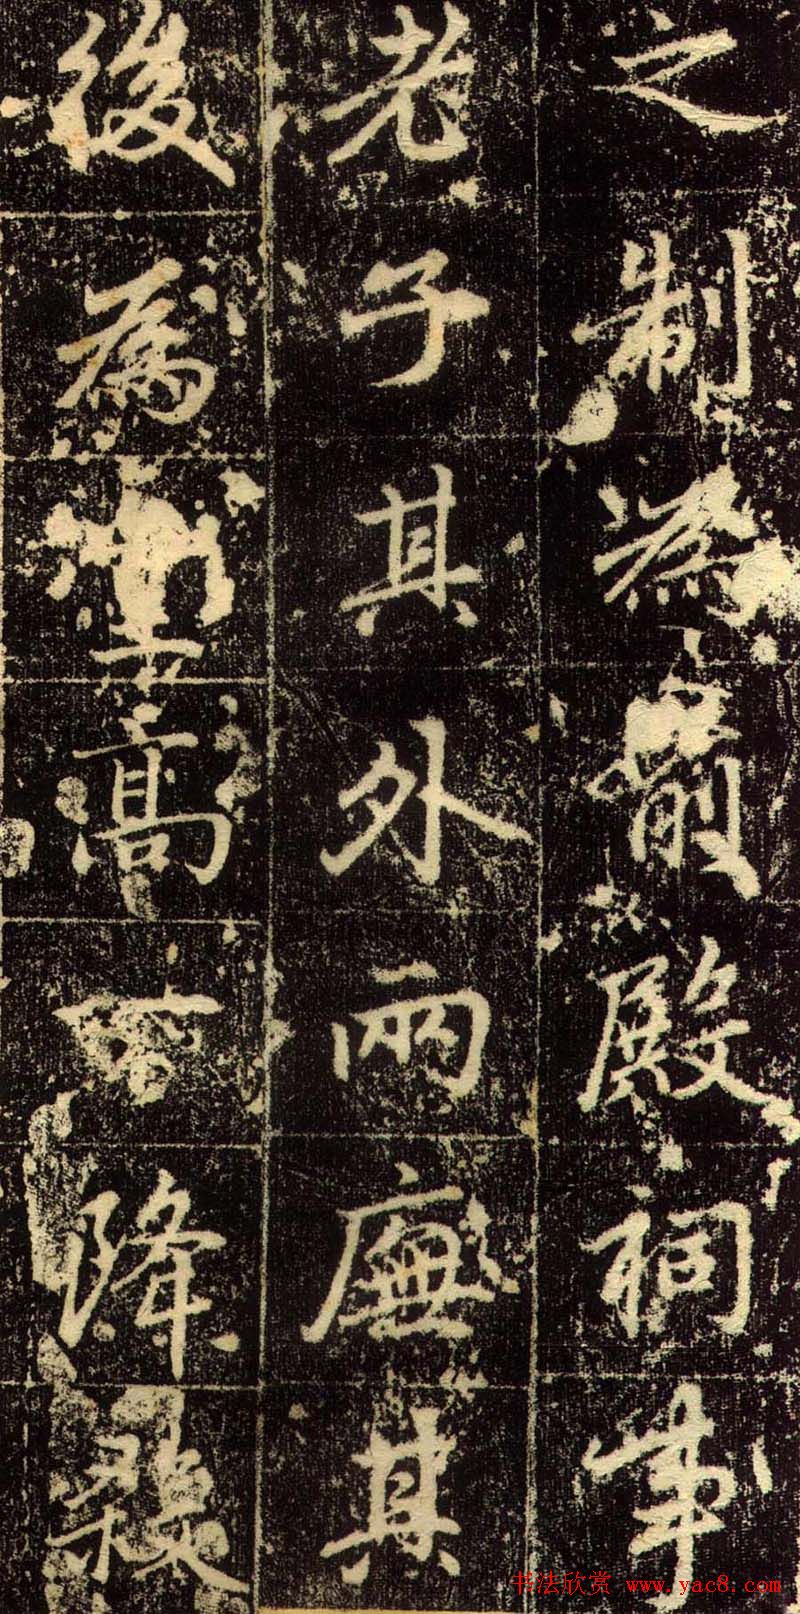 之制為前殿祠事
老子其外兩廡其
後為堂高降殺
书法欣赏 www.yac8.com